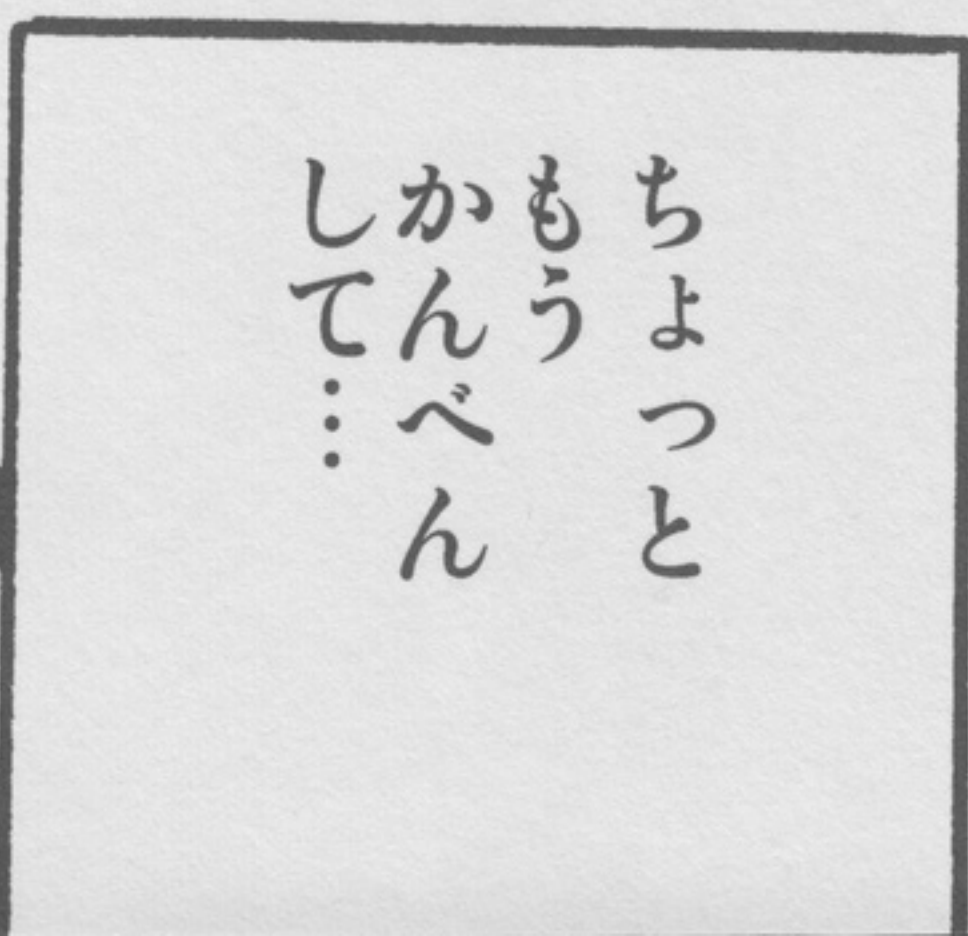 ちょっと
もう
かんべん
して…